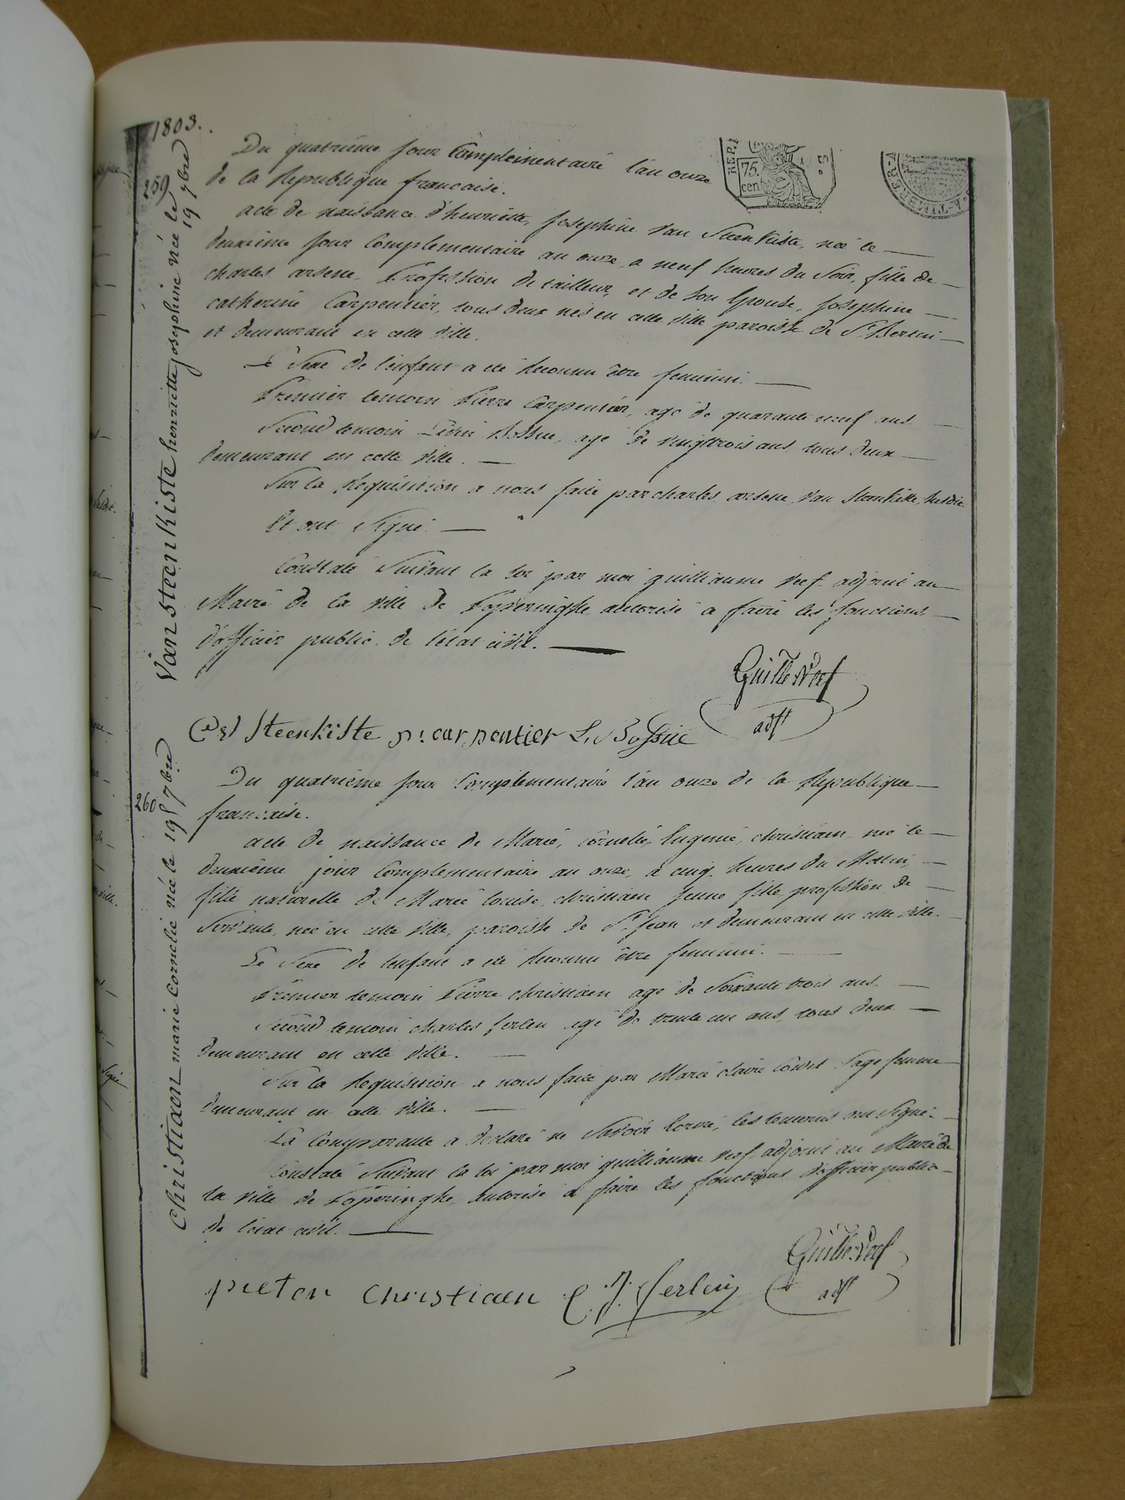 1803.
259
Van Steenkiste henriette josephine née le
19 7bre
REP.
75.
cent
Du quatrième jour Complementaire l'an onze
de la Republique francaise.
acte de naissance d'henriette, Josephine Van Steenkiste, née le
deuxieme jour Complementaire an onze, a neuf heures du Soir, fille de
charles arsene Profession de tailleur, et de son Epouse, Josephine
catherine Carpentier, tous deux nés en cette ville paroisse de St Bertin
et demeurant en cette ville.
Le Sexe de l'enfant a été Reconnu être feminin.
Premier temoin Pierre Carpentier, agé de quarante neuf ans
Second temoin Bossue, agé de vingttrois ans tous deux
demeurant en cette Ville.
Sur la Requisition a nous faite par charles arsene Van Steenkiste susdit
Et ont Signé.
Constaté Suivant la loi par moi guilliaume Nef adjoint au
Maire de la ville de Poperinghe autorisé a faire les fonctions
d'officier public de l'état civil.
Guille Nef
adjt
Steenkiste p: carpentier L. Bossue
260
Christiaen marie Cornelie née le 19 7bre
Du quatrième jour Complementaire l'an onze de la Republique
francaise.
acte de naissance de Marie, Cornelie Eugenie, christiaen née le
deuxième jour Complementaire an onze, a cinq heures du Matin
fille naturelle de Marie louise, christiaen Jeune fille profession de
Servante, née en cette Ville, paroisse de St Jean et demeurant en cette ville.
Le Sexe de l'enfant a été Reconnu être feminin.
Premier temoin Pierre christiaen agé de Soixante trois ans
Second temoin charles ferlin agé de trente un ans, tous deux
demeurant en cette Ville.
Sur la Requisition a nous faite par Marie claire Sage femme
demeurant en cette Ville.
La Comparante a declaré ne Savoir Ecrire, les temoins ont Signé.
Constaté Suivant la loi par moi guilliaume Nef adjoint au Maire de
la Ville de Poperinghe, autorisé a faire les fonctions d'officier public
de l'état civil.
Guille Nef
adjt
pieter Christiaen C. J. ferlin